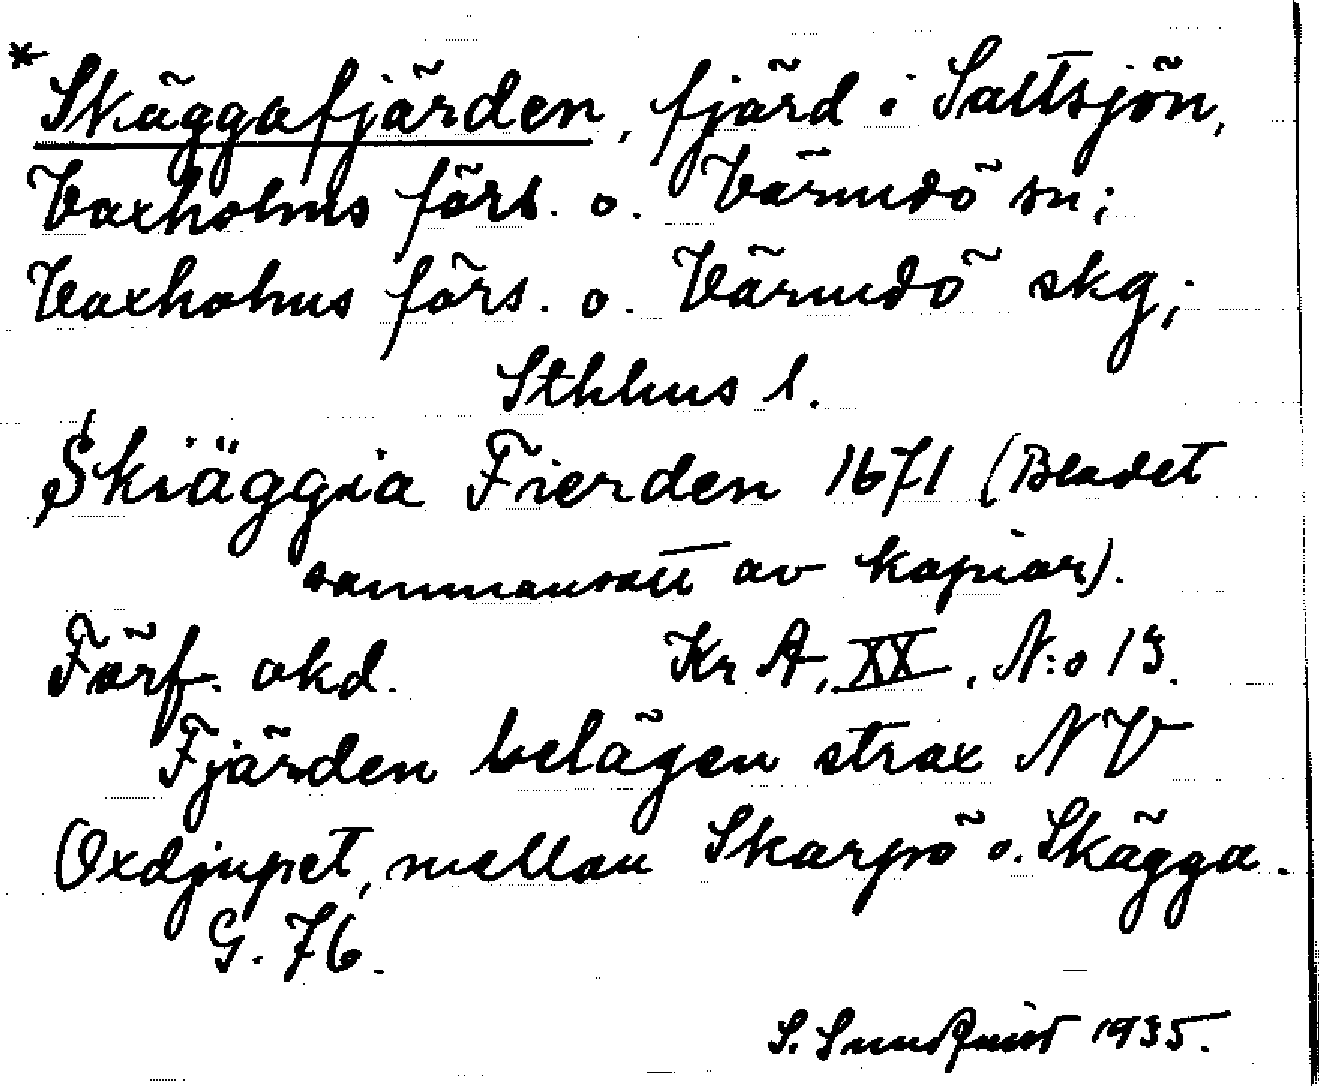 * Skäggafjärden, fjärd i Saltsjön,
Vaxholms förs. o. Värmdö sn;
Vaxholms förs. o. Värmdö skg;
Sthlms l.
Skiäggia Fierden 1671 (Bladet
sammansatt av kopior).
Förf. okd. Kr A, XX, N:o 13.
Fjärden belägen strax NV
Oxdjupet, mellan Skarpö o. Skägga.
G. 76.
S. Sundquist 1935.